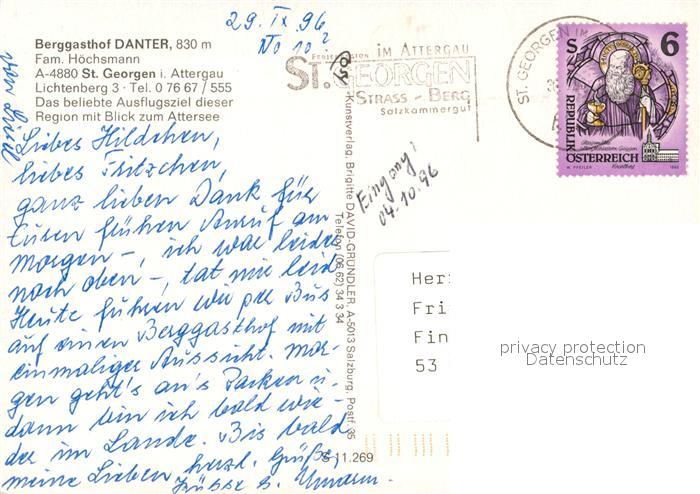 29. IX 96
No 10?
Berggasthof DANTER, 830 m
Fam. Höchsmann
A-4880 St. Georgen i. Attergau
Lichtenberg 3 · Tel. 0 76 67 / 555
Das beliebte Ausflugsziel dieser
Region mit Blick zum Attersee
Liebes Hildchen,
liebes Fritzchen,
ganz lieben Dank für
Euren frühen Anruf am
Morgen –, ich war leider
noch oben –, tat mir leid
Heute führen wir per Bus
auf einen Berggasthof mit
einmaliger Aussicht. Mor-
gen geht's an's Packen u.
dann bin ich bald wie-
der im Lande. Bis bald
meine Lieben, herzl. Grüße,
Küsse
von
IM ATTERGAU
ST. GEORGEN
STRASS - BERG
Salzkammergut
Eingang:
04.10.96
Kunstverlag, Brigitte DAVID-GRÜNDLER, A-5013 Salzburg, Postf. 35
Telefon (06 62) 34 3 34
S 11.269
ST. GEORGEN IM
S 6
REPUBLIK
ÖSTERREICH
Her
Fri
Fin
53
privacy protection
Datenschutz